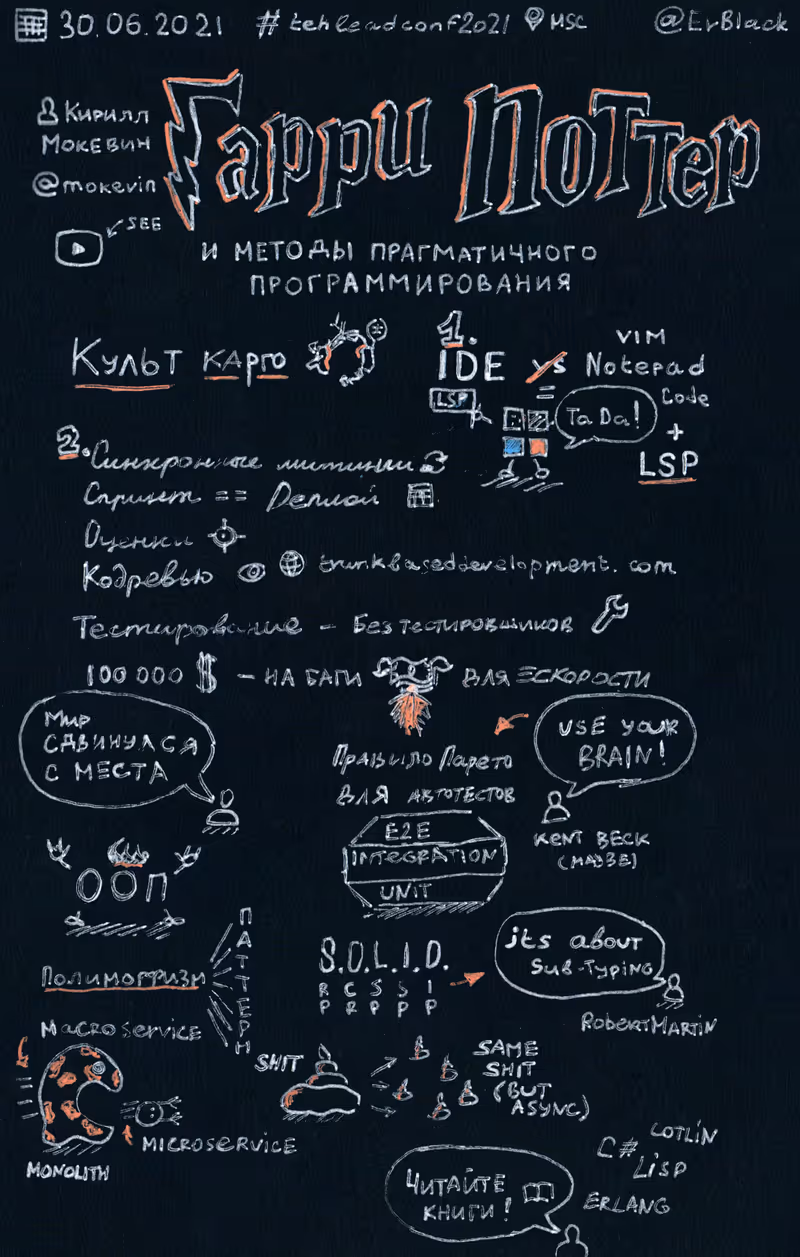 30.06.2021 #tehleadconf2021 MSC @ErBlack
Кирилл
Мокевин
@mokevin
SEE
Гарри Поттер
и методы прагматичного
программирования
Культ карго
1.
IDE vs Notepad
VIM
Code
=
LSP
TaDa!
+
LSP
2. Синхронные митинги
Спринт == Деплой
Оценки
Кодревью trunkbaseddevelopment.com
Тестирование - Без тестировщиков
100 000 $ - на баги для
Мир
сдвинулся
с места
Правило Парето
для автотестов
USE YOUR
BRAIN!
KENT BECK
(MAYBE)
E2E
INTEGRATION
UNIT
ООП
Полиморфизм
ПАТТЕРН
S.O.L.I.D.
R C S S I
P R P P P
its about
Sub-Typing
Robert Martin
Macroservice
MONOLITH
MICROSERVICE
SHIT
SAME
SHIT
(BUT
ASYNC)
Читайте
книги!
C#
COTLIN
LISP
ERLANG